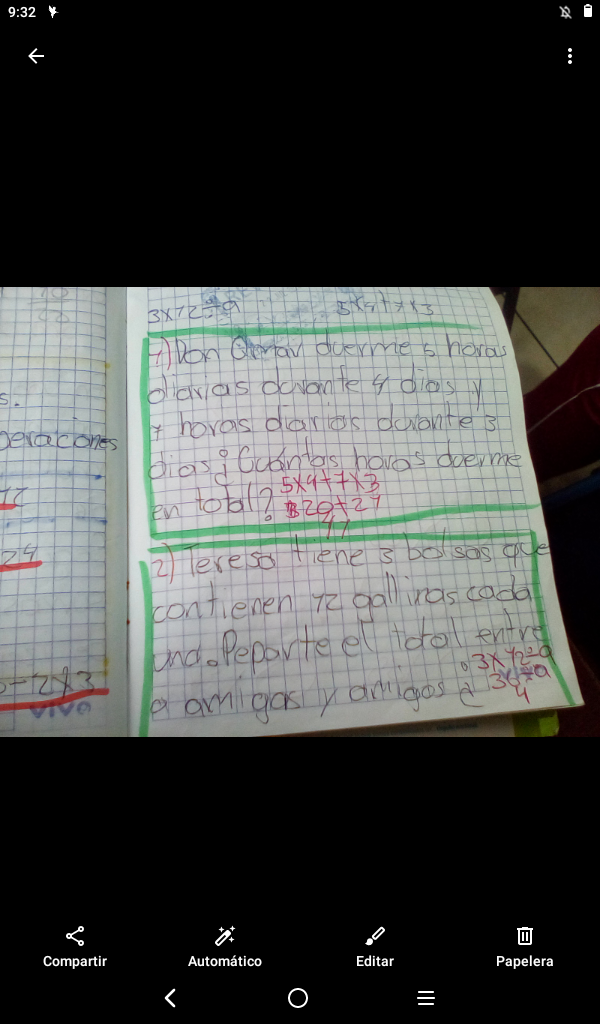 9:32
3x12÷9 5x4+7x3
1) Don Omar duerme 5 horas
diarias durante 4 dias y
7 horas diarias durante 3
dias ¿Cuántas horas duerme
5x4+7x3
en total? 20+21
41
2) Teresa tiene 3 bolsas que
contienen 12 gallinas cada
una. Reparte el total entre
3x12÷9
9 amigas y amigos ¿
4
s.
peraciones
12
24
-2x3
vivo
Compartir Automático Editar Papelera